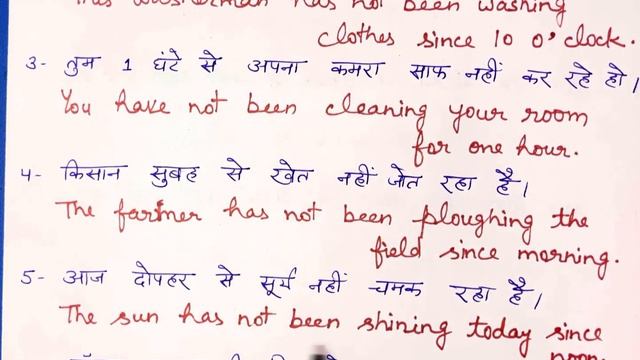 has not been washing
clothes since 10 o'clock.
3- तुम 1 घंटे से अपना कमरा साफ नहीं कर रहे हो।
You have not been cleaning your room
for one hour.
4- किसान सुबह से खेत नहीं जोत रहा है।
The farmer has not been ploughing the
field since morning.
5- आज दोपहर से सूर्य नहीं चमक रहा है।
The sun has not been shining today since
noon.